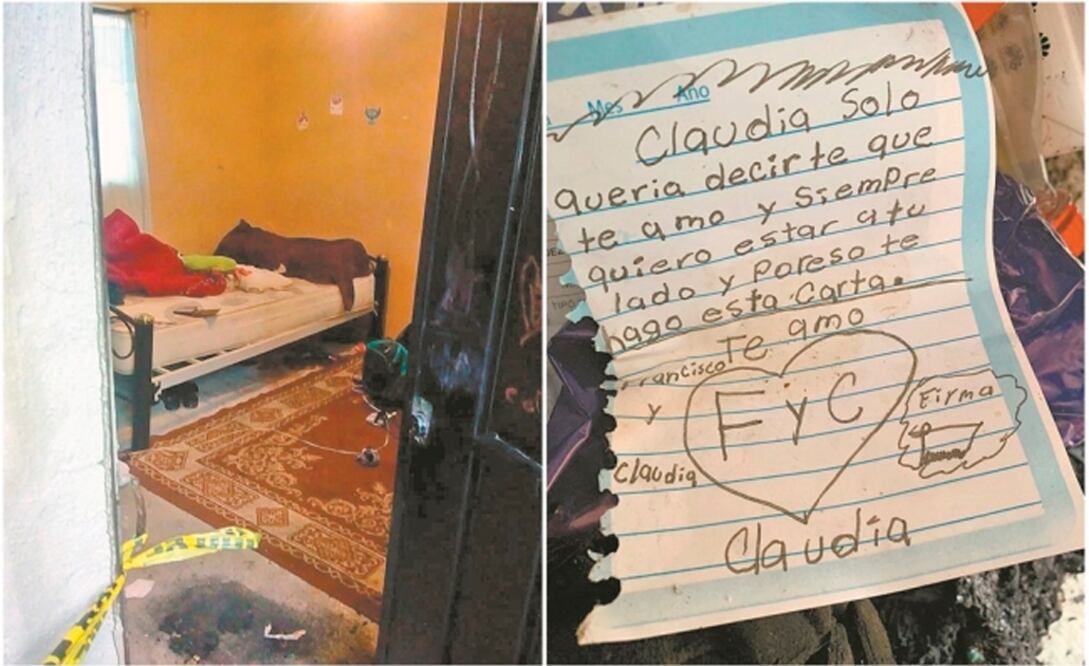 Mes Año
Claudia Solo
queria decirte que
te amo y siempre
quiero estar a tu
lado y poreso te
hago esta carta.
Te amo
Francisco
y
Claudia
F y C
Firma
Claudia